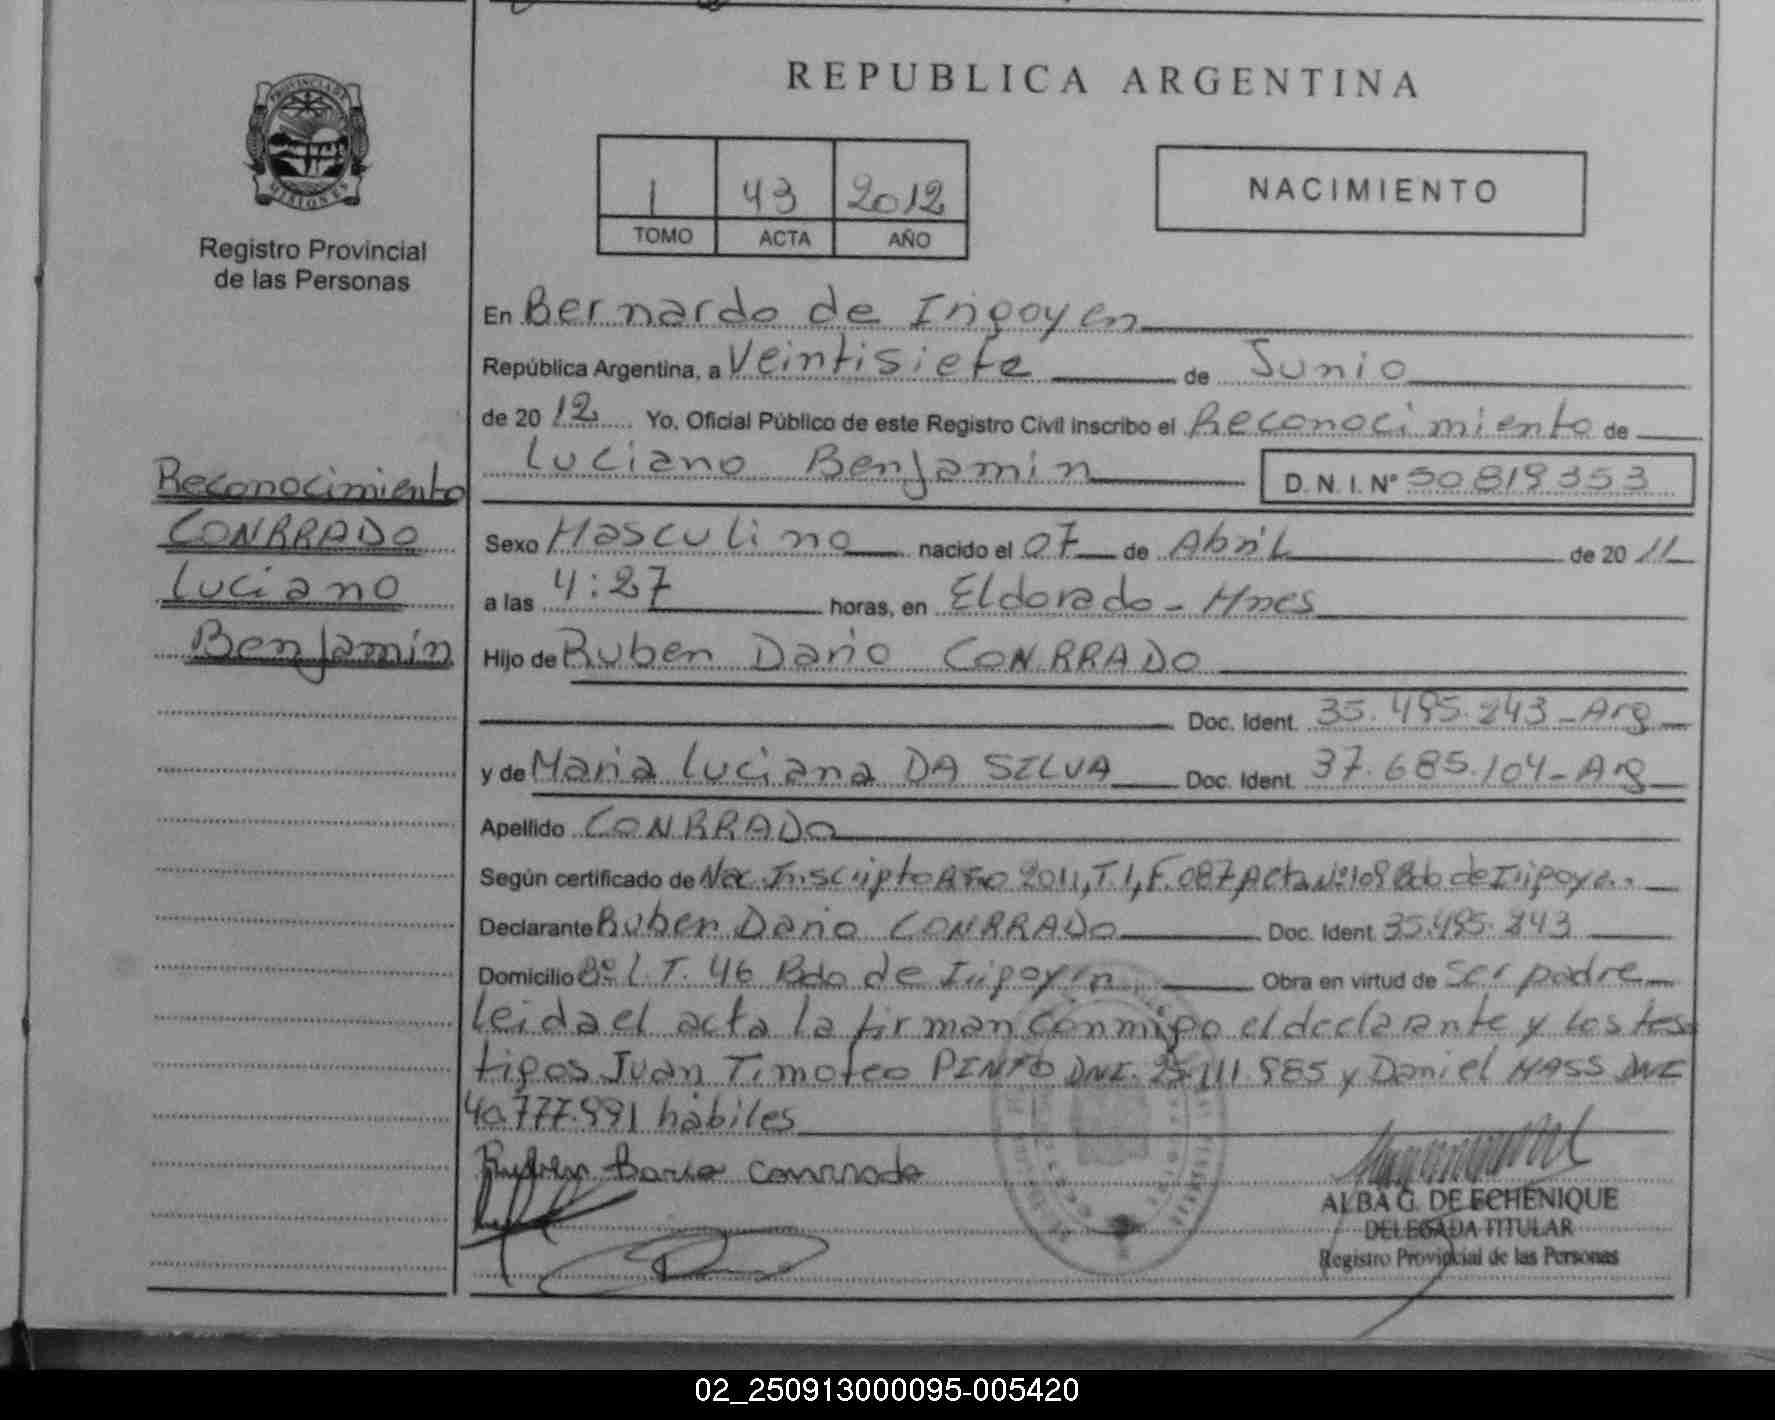 PROVINCIA DE
MISIONES
Registro Provincial
de las Personas
Reconocimiento
CONRRADO
Luciano
Benjamin
REPUBLICA ARGENTINA
1 43 2012
TOMO ACTA AÑO
NACIMIENTO
En Bernardo de Irigoyen
República Argentina, a Veintisiete de Junio
de 20 12 Yo, Oficial Público de este Registro Civil inscribo el Reconocimiento de
Luciano Benjamin D.N.I. Nº 50819353
Sexo Masculino nacido el 07 de Abril de 20 11
a las 4:27 horas, en Eldorado - Mnes
Hijo de Ruben Dario CONRRADO
Doc. Ident. 35.495.243 - Arg
y de Maria Luciana DA SILVA Doc. Ident. 37.685.104 - Arg
Apellido CONRRADO
Según certificado de Nac. Inscripto Año 2011, T.1, F.087 Acta Nº 109 Bdo de Irigoyen
Declarante Ruben Dario CONRRADO Doc. Ident. 35.495.243
Domicilio Bº L.T. 46 Bdo de Irigoyen Obra en virtud de ser padre
leida el acta la firman conmigo el declarante y los tes
tigos Juan Timoteo PINTO DNI. 25.111.985 y Daniel MASS DNI
40.777.991 hábiles
Ruben Dario Conrrado
ALBA G. DE ECHENIQUE
DELEGADA TITULAR
Registro Provincial de las Personas
02_250913000095-005420